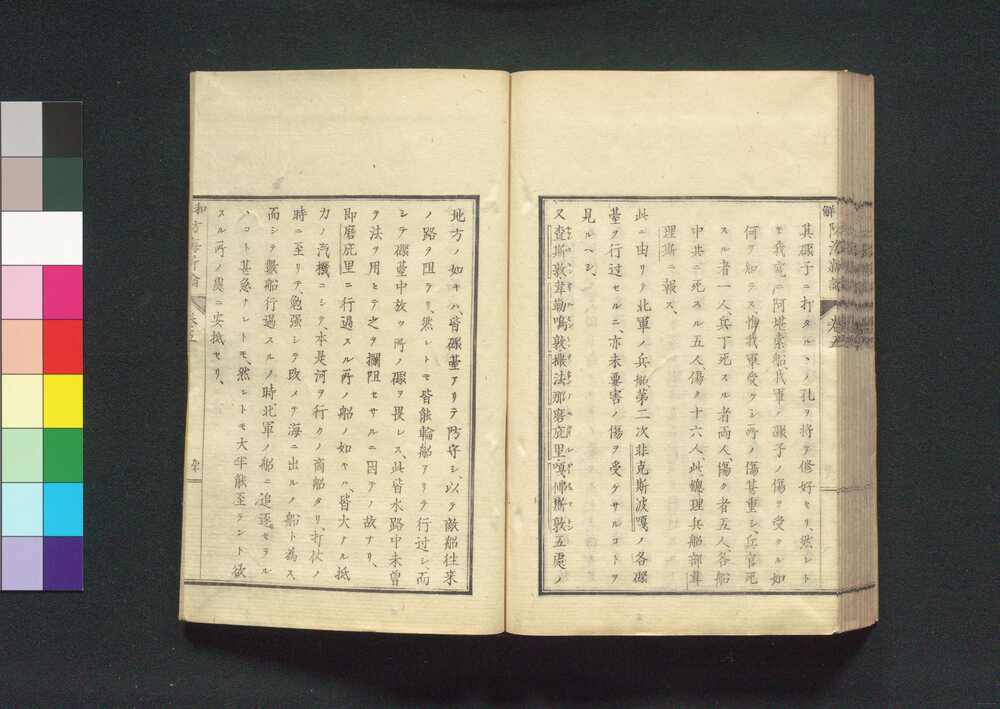 其礮子ニ打タル丶ノ孔ヲ將テ修好セリ、然レトモ我竟ニ阿堪索船、我軍ノ礮子ノ傷ヲ受クル如
何ヲ知ラス、惟我軍受ケシ所ノ傷甚重シ、兵官死
スル者一人、兵丁死スル者両人、傷ク者五人、各船
中共ニ死スル五人傷ク十六人、此總理兵船部韋
理斯ニ報ス、
此ニ由リテ北軍ノ兵船、第二次非克斯波嘎ノ各礮
臺ヲ行過セルニ、亦未要害ノ傷ヲ受ケサルコトヲ
見ルヘシ、
又査斯敦韋勒鳴敦撒法那磨庇里嘎佛斯敦五處ノ
地方ノ如キハ、皆礮臺アリテ防守シ、以テ敵船往来
ノ路ヲ阻テリ、然レトモ皆能輪船アリテ行過シ、而
シテ礮臺中放ツ所ノ礮ヲ畏レス、此皆水路中未曾
テ法ヲ用ヒテ之ヲ攔阻セサルニ因テノ故ナリ、
即磨庇里ニ行過スル所ノ船ノ如キハ、皆大ナル抵
力ノ汽機ニシテ、本是河ヲ行クノ商船タリ、打仗ノ
時ニ至リテ、勉强シテ改メテ海ニ出ルノ船ト為ス、
而シテ數船行過スルノ時、北軍ノ船ニ追逐セラル
丶コト甚急ナレトモ、然レトモ大半能至ラント欲
スル所ノ處ニ安抵セリ、